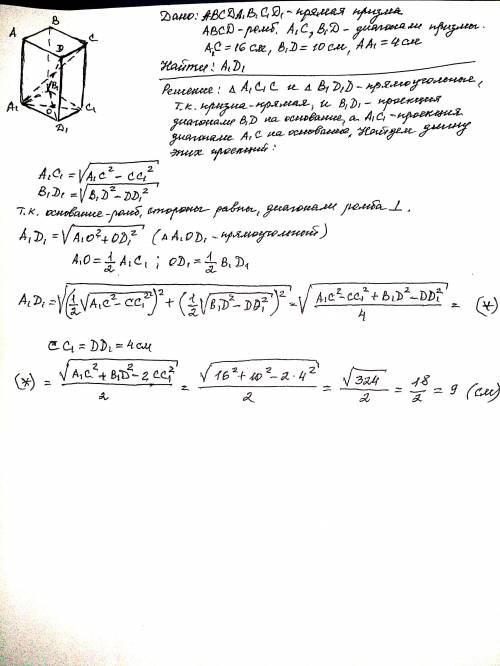 B
A
C
D
B₁
A₁
O
C₁
D₁
Дано: ABCDA₁B₁C₁D₁ - прямая призма
ABCD - ромб. A₁C, B₁D - диагонали призмы.
A₁C = 16 см, B₁D = 10 см, AA₁ = 4 см
Найти: A₁D₁
Решение: △ A₁C₁C и △ B₁D₁D - прямоугольные,
т.к. призма - прямая, и B₁D₁ - проекция
диагонали B₁D на основание, а A₁C₁ - проекция
диагонали A₁C на основание, Найдем длину
этих проекций:
A₁C₁ = √(A₁C² - CC₁²)
B₁D₁ = √(B₁D² - DD₁²)
т.к. основание - ромб, стороны равны, диагонали ромба ⊥.
A₁D₁ = √(A₁O² + OD₁²) (△ A₁OD₁ - прямоугольный)
A₁O = 1/2 A₁C₁ ; OD₁ = 1/2 B₁D₁
A₁D₁ = √((1/2 √(A₁C² - CC₁²))² + (1/2 √(B₁D² - DD₁²))²) = √((A₁C² - CC₁² + B₁D² - DD₁²)/4) = (*)
CC₁ = DD₁ = 4 см
(*) = √(A₁C² + B₁D² - 2CC₁²)/2 = √(16² + 10² - 2·4²)/2 = √324/2 = 18/2 = 9 (см)